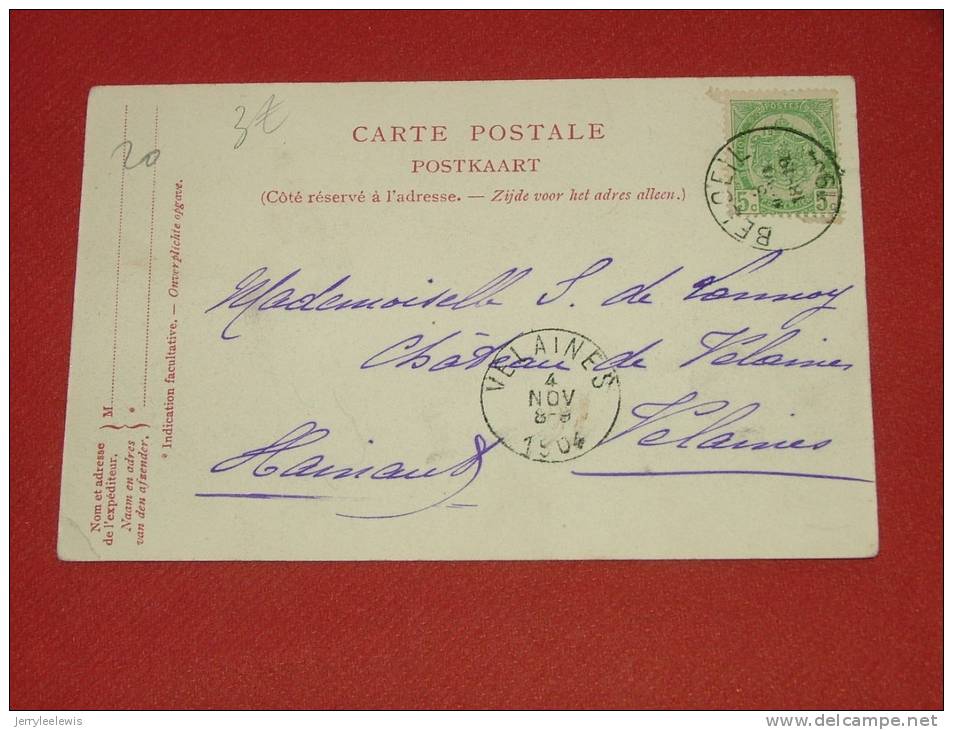 3€
20
CARTE POSTALE
POSTKAART
(Côté réservé à l'adresse. — Zijde voor het adres alleen.)
POSTES
5c 5c
BELOEIL
Mademoiselle S. de Lannoy
Château de Velaines
Velaines
Hainaut
VELAINES
4
NOV
8-9
1904
Nom et adresse
de l'expéditeur.
Naam en adres
van den afzender.
M
*
* Indication facultative. — Onverplichte opgave.
jerryleelewis
www.delcampe.net